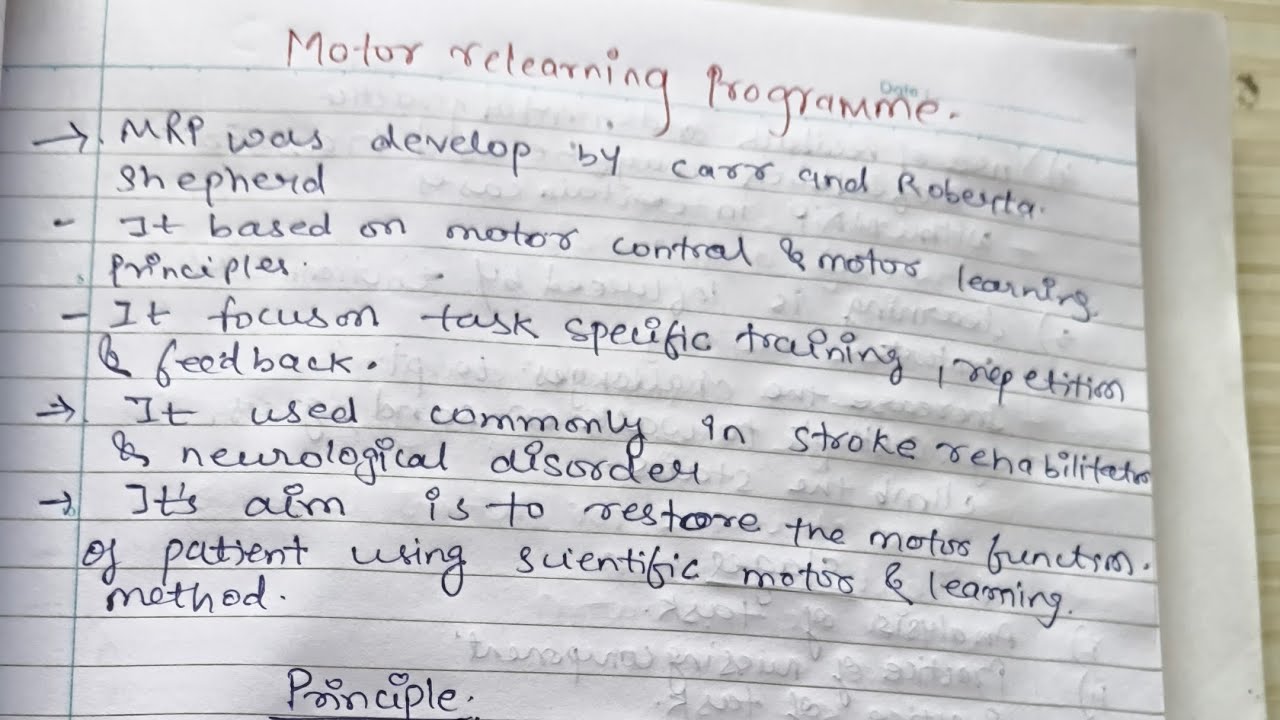 Motor relearning Programme.
Date
→ MRP was develop by Carr and Roberta.
Shepherd
- It based on motor control & motor learning
principles.
- It focus on task specific training, repetition
& feedback.
→ It used commonly in stroke rehabilitation
& neurological disorder
→ It's aim is to restore the motor function.
of patient using scientific motor & learning.
method.
Principle.